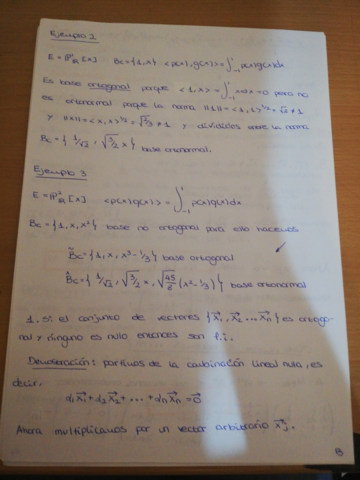 Ejemplo 2
E = P¹_R [x]   Bc = {1, x}   <p(x), g(x)> = ∫₋₁¹ p(x)g(x)dx
Es base ortogonal porque <1, x> = ∫₋₁¹ x dx = 0 pero no
es ortonormal porque la norma ||1|| = <1, 1>^1/2 = √2 ≠ 1
y ||x|| = <x, x>^1/2 = √2/3 ≠ 1 y dividiendo entre la norma
Bc = { 1/√2, √3/2 x } base ortonormal.
Ejemplo 3
E = P²_R [x]   <p(x) g(x)> = ∫₋₁¹ p(x)g(x)dx
Bc = {1, x, x²} base no ortogonal para ello hacemos
B̃c = {1, x, x² - 1/3} base ortogonal
B̂c = { 1/√2, √3/2 x, √45/8 (x² - 1/3) } base ortonormal
1. Si el conjunto de vectores {x⃗₁, x⃗₂ ... x⃗n} es ortogo-
nal y ninguno es nulo entonces son l.i.
Demostración: partimos de la combinación lineal nula, es
decir,
α₁x⃗₁ + α₂x⃗₂ + ... + αnx⃗n = 0⃗
Ahora multiplicamos por un vector arbitrario x⃗j.